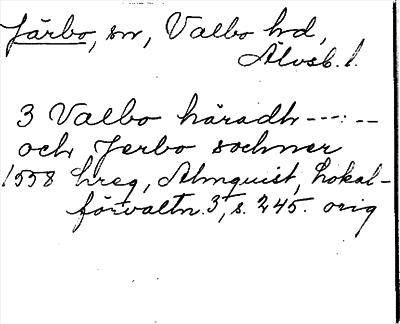 Järbo, sn, Valbo hd,
Älvsb. l.
3 Valbo häradh ---:--
och Jerbo sochner
1558 Lreg, Almquist, Lokal-
förvaltn. 3, s. 245. orig